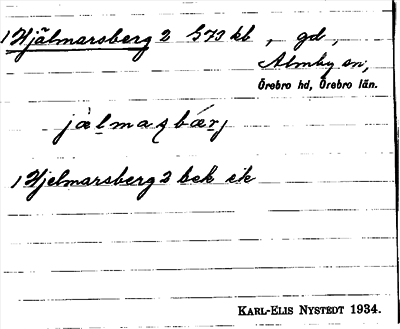 1 Hjälmarsberg 2 573 kb, gd,
Almby sn,
Örebro hd, Örebro län.
jälmazbärj
1 Hjelmarsberg 2 bek ek
KARL-ELIS NYSTEDT 1934.